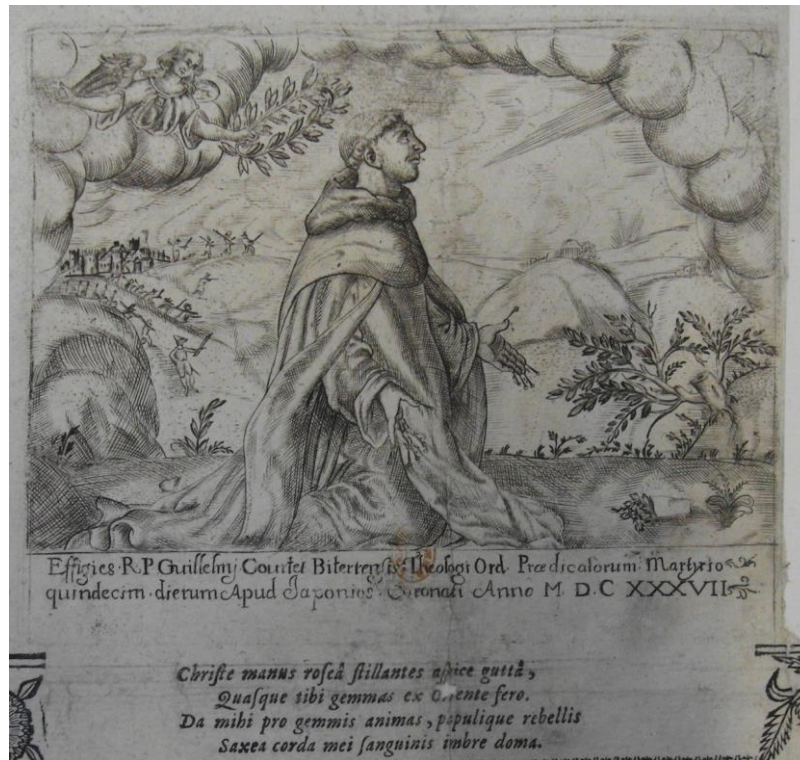 Effigies · R · P Guillelmj Courtet Biterrensis · Theologi Ord · Prædicatorum · Martyrio
quindecim · dierum Apud Japonios · Coronati Anno M D.C XXXVII
Chriſte manus roſeâ ſtillantes aſpice guttâ,
Quaſque tibi gemmas ex Oriente fero.
Da mihi pro gemmis animas, populique rebellis
Saxea corda mei ſanguinis imbre doma.